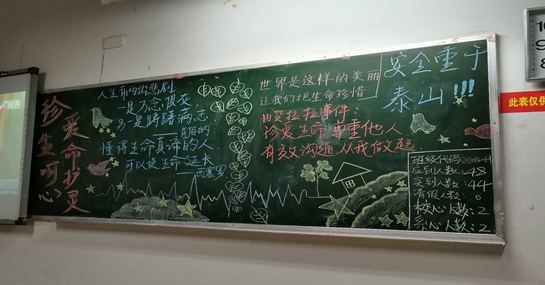 珍爱
生命
呵护
心灵
人生有两出悲剧
一是万念俱灰
另一是踌躇
懂得生命真谛的人
可以使生命延长
——西塞罗
世界是这样的美丽
让我们把生命珍惜
拉拉事件:
珍爱生命尊重他人
有效沟通 从我做起
安全重于
泰山!!!
班级代码
应到人数:48
实到人数:44
请假人数:
校心人数:2
系心人数:2
此表仅供